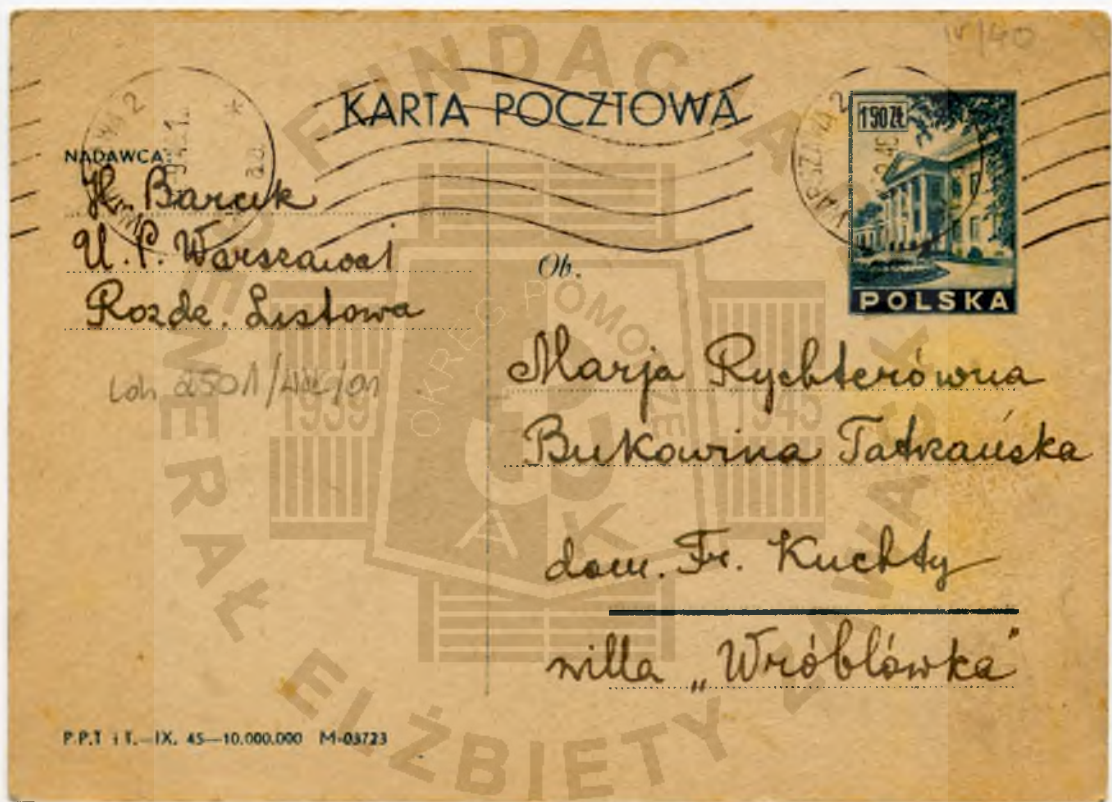 IV/40
KARTA POCZTOWA
WARSZAWA 2
WARSZAWA 2
150 ZŁ
POLSKA
NADAWCA:
H. Barcik
U. P. Warszawa 1
Rozdz. Listowa
2501/WSK/01
Ob.
Marja Rychterówna
Bukowina Tatrzańska
dom. Fr. Kuchty
willa „Wróblówka”
P.P.T i T.—IX. 45—10.000.000 M-03723
FUNDACJA
GENERAŁ ELŻBIETY ZAWACKIEJ
OKRĘG POMORZE
AK
1939
1945